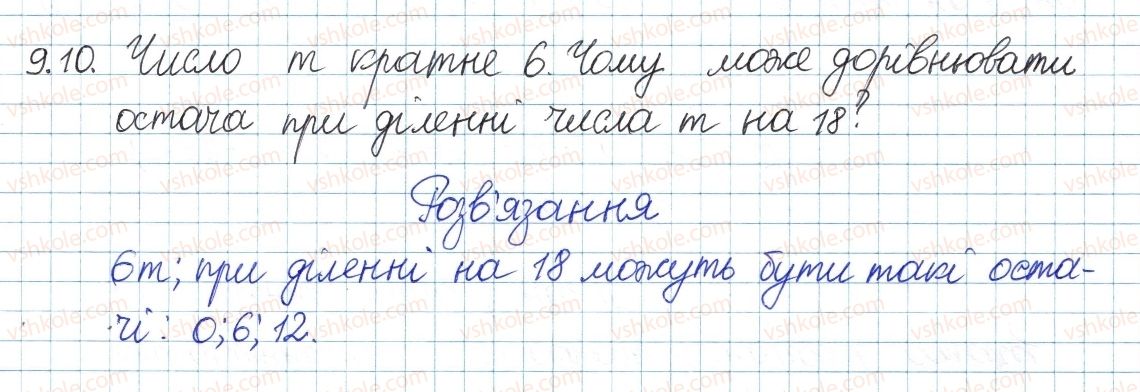 9.10. Число m кратне 6. Чому може дорівнювати
остача при діленні числа m на 18?
Розв'язання
6m; при діленні на 18 можуть бути такі оста-
чі: 0; 6; 12.